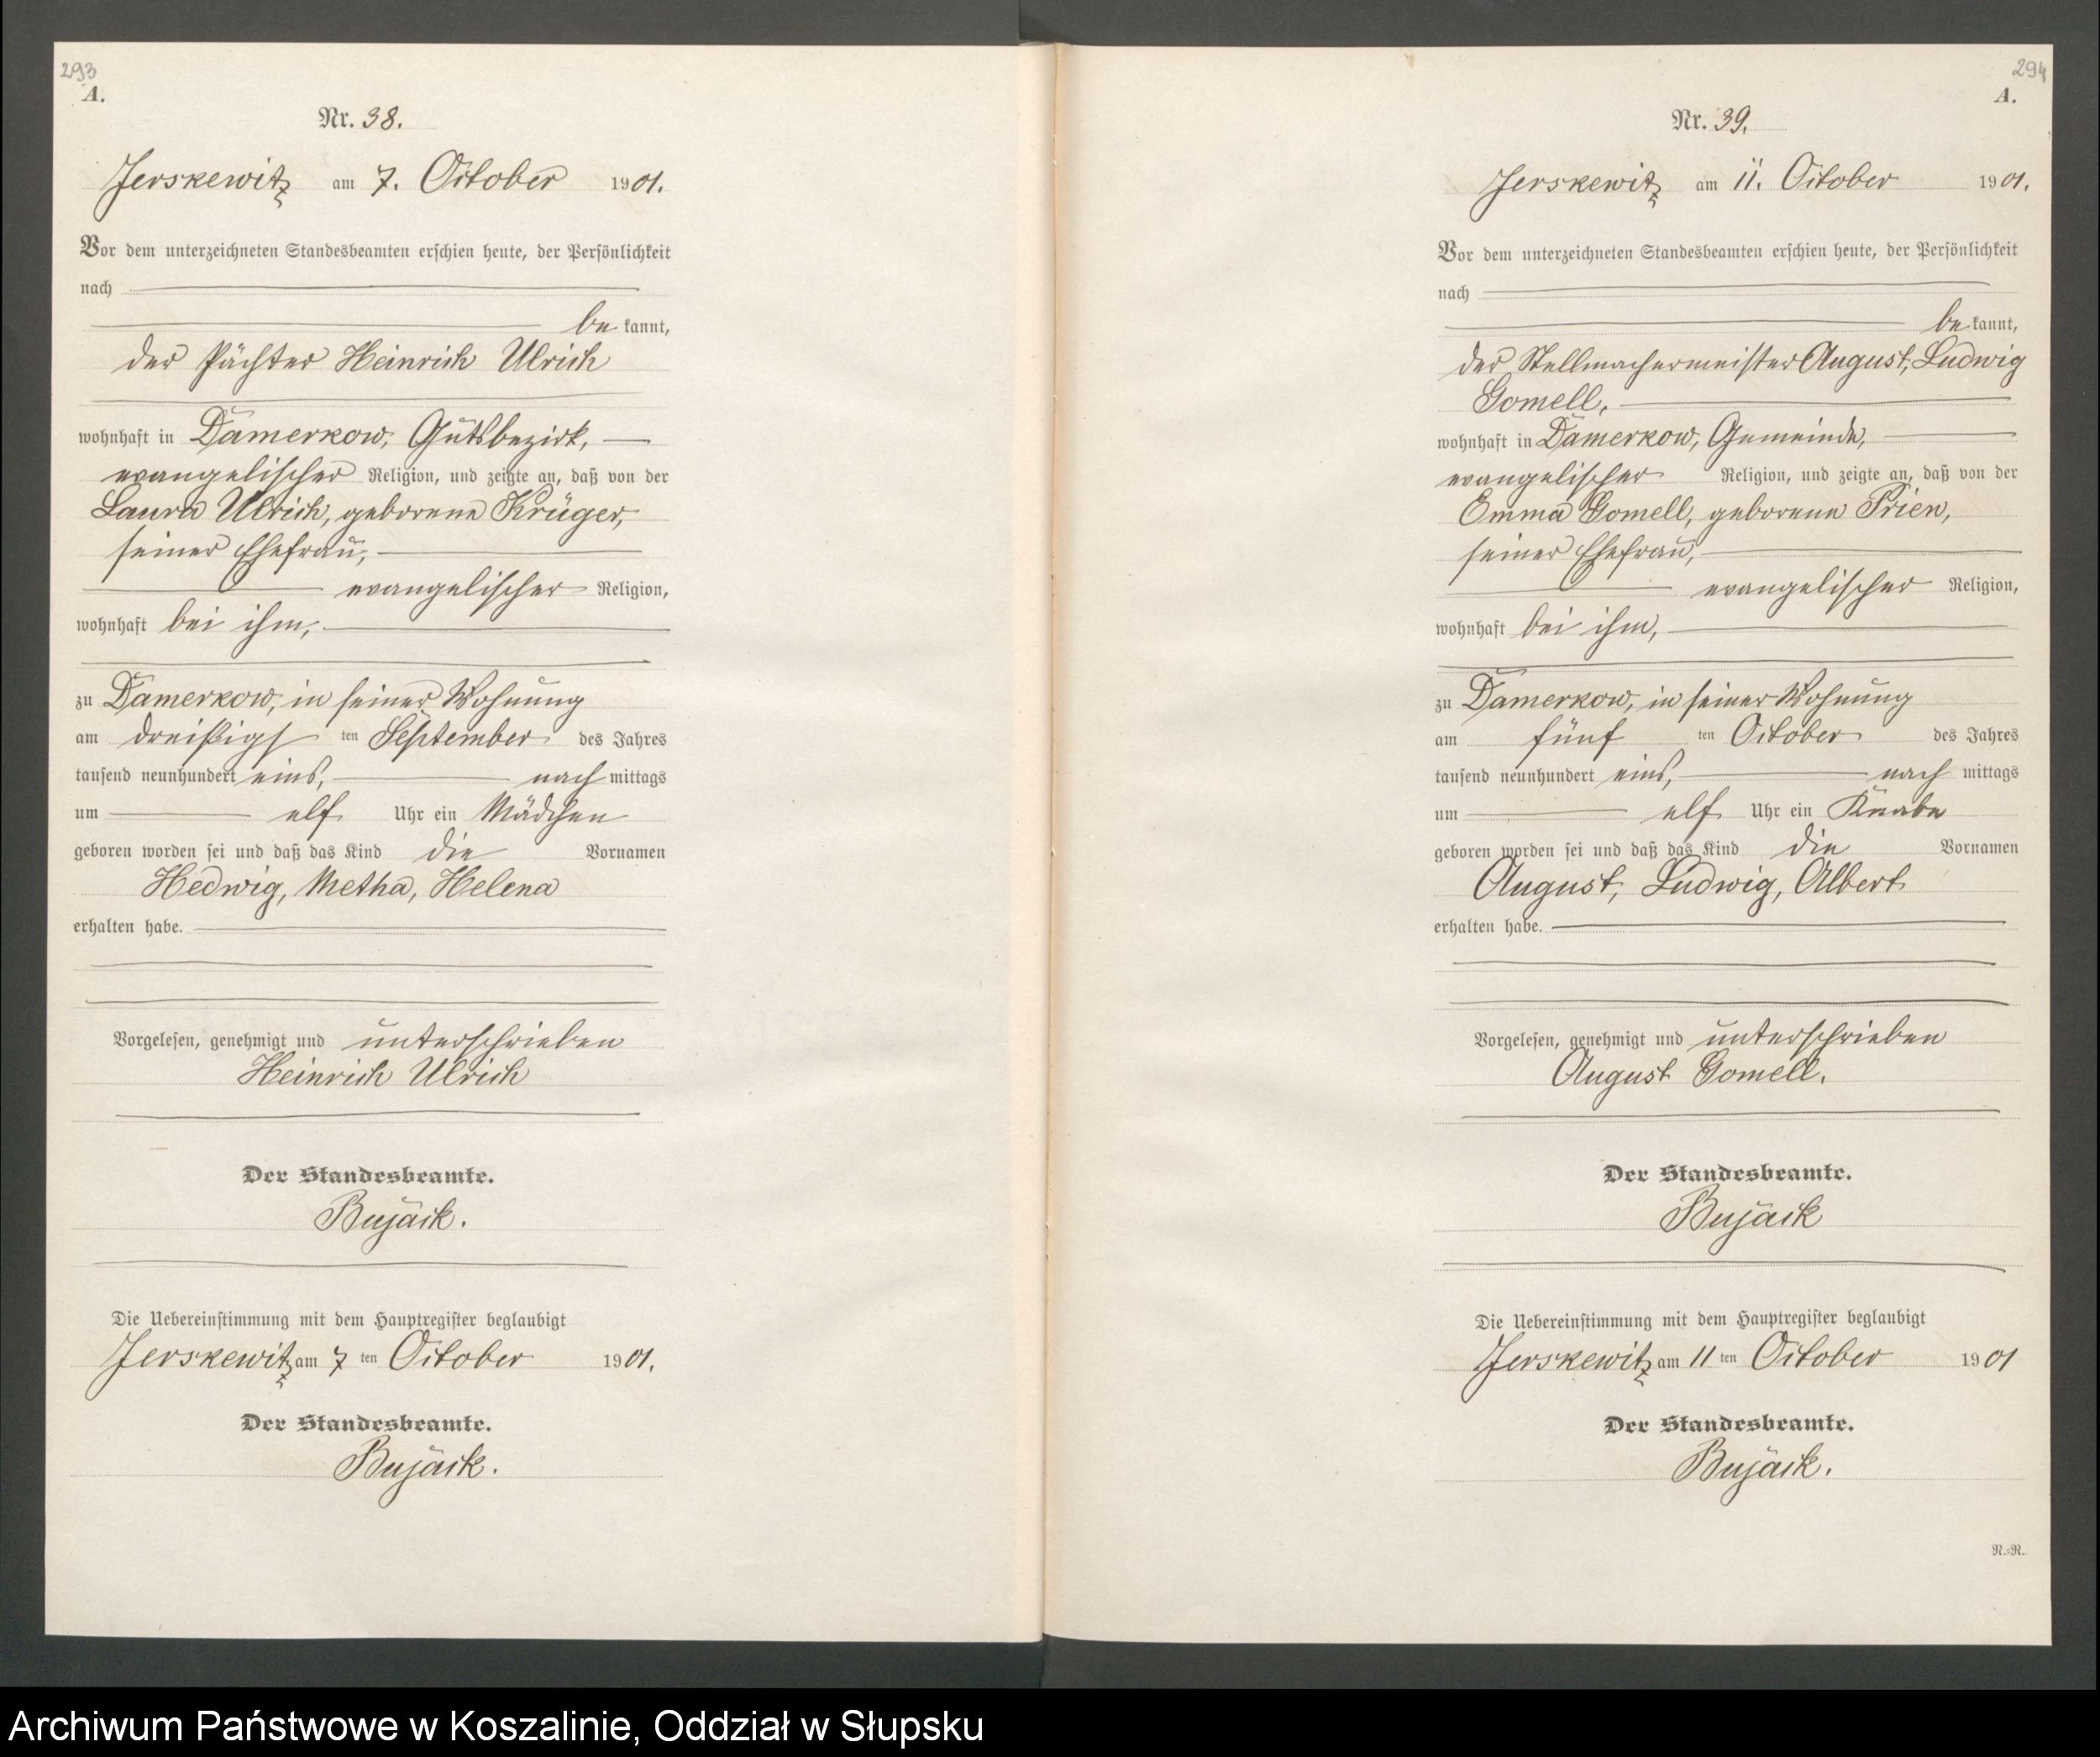 293
A.
Nr. 38.
Jerskewitz am 7. October 1901.
Vor dem unterzeichneten Standesbeamten erschien heute, der Persönlichkeit
nach
bekannt,
der Pächter Heinrich Ulrich
wohnhaft in Damerkow, Gutsbezirk,
evangelischer Religion, und zeigte an, daß von der
Laura Ulrich, geborene Krüger,
seiner Ehefrau,
evangelischer Religion,
wohnhaft bei ihm,
zu Damerkow, in seiner Wohnung
am dreißigsten September des Jahres
tausend neunhundert eins, nachmittags
um elf Uhr ein Mädchen
geboren worden sei und daß das Kind die Vornamen
Hedwig, Metha, Helena
erhalten habe.
Vorgelesen, genehmigt und unterschrieben
Heinrich Ulrich
Der Standesbeamte.
Bujack.
Die Uebereinstimmung mit dem Hauptregister beglaubigt
Jerskewitz am 7 ten October 1901.
Der Standesbeamte.
Bujack.
294
A.
Nr. 39.
Jerskewitz am 11. October 1901.
Vor dem unterzeichneten Standesbeamten erschien heute, der Persönlichkeit
nach
bekannt,
der Stellmachermeister August, Ludwig
Gomell,
wohnhaft in Damerkow, Gemeinde,
evangelischer Religion, und zeigte an, daß von der
Emma Gomell, geborene Prien,
seiner Ehefrau,
evangelischer Religion,
wohnhaft bei ihm,
zu Damerkow, in seiner Wohnung
am fünf ten October des Jahres
tausend neunhundert eins, nach mittags
um elf Uhr ein Knabe
geboren worden sei und daß das Kind die Vornamen
August, Ludwig, Albert
erhalten habe.
Vorgelesen, genehmigt und unterschrieben
August Gomell.
Der Standesbeamte.
Bujack
Die Uebereinstimmung mit dem Hauptregister beglaubigt
Jerskewitz am 11 ten October 1901
Der Standesbeamte.
Bujack.
N.=R.
Archiwum Państwowe w Koszalinie, Oddział w Słupsku